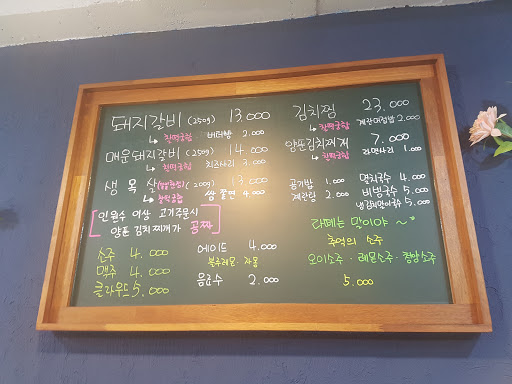 돼지갈비 (250g) 13.000
↳ 찰떡궁합 버터밥 2.000
매운돼지갈비 (250g) 14.000
↳ 찰떡궁합 치즈사리 3.000
생목살 (200g) 13.000
↳ 찰떡궁합 쌈쫄면 4.000
인원수 이상 고기주문시
양푼 김치찌개가 공짜
소주 4.000
맥주 4.000
클라우드 5.000
에이드 4.000
블루레몬·자몽
음료수 2.000
김치찜 23.000
↳ 찰떡궁합 계란버섯밥 2.000
양푼김치찌개 7.000
↳ 찰떡궁합 라면사리 1.000
공기밥 1.000
계란탕 2.000
멸치국수 4.000
비빔국수 5.000
냉김치말이국수 5.000
라떼는 말이야~
추억의 소주
오이소주·레몬소주·청양소주
5.000